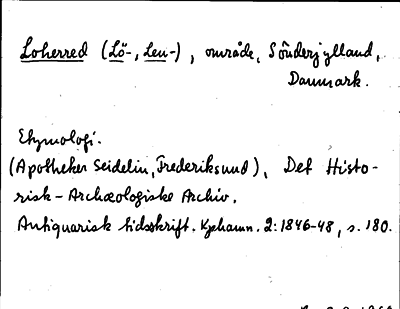 Loherred (Lö-, Leu-), område, Sönderjylland,
Danmark.
Etymologi.
(Apotheker Seidelin, Frederiksund), Det Histo-
risk-Archæologiske Archiv.
Antiquarisk tidsskrift. Kjøhamn. 2: 1846-48, s. 180.